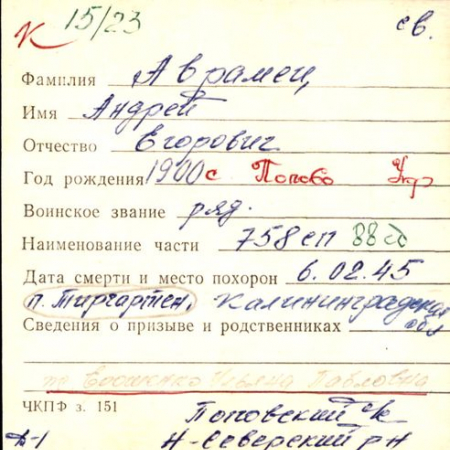 К 15/23 св.
Фамилия Аврамец,
Имя Андрей
Отчество Егорович
Год рождения 1900 с Попово Укр
Воинское звание ряд.
Наименование части 758 сп 88 сд
Дата смерти и место похорон 6.02.45
п. Тиргартен, Калининградская
Сведения о призыве и родственниках обл
Ерошенко Ульяна Павловна
ЧКПФ з. 151 Поповский с/с
Д-1 Н-Северский р-н